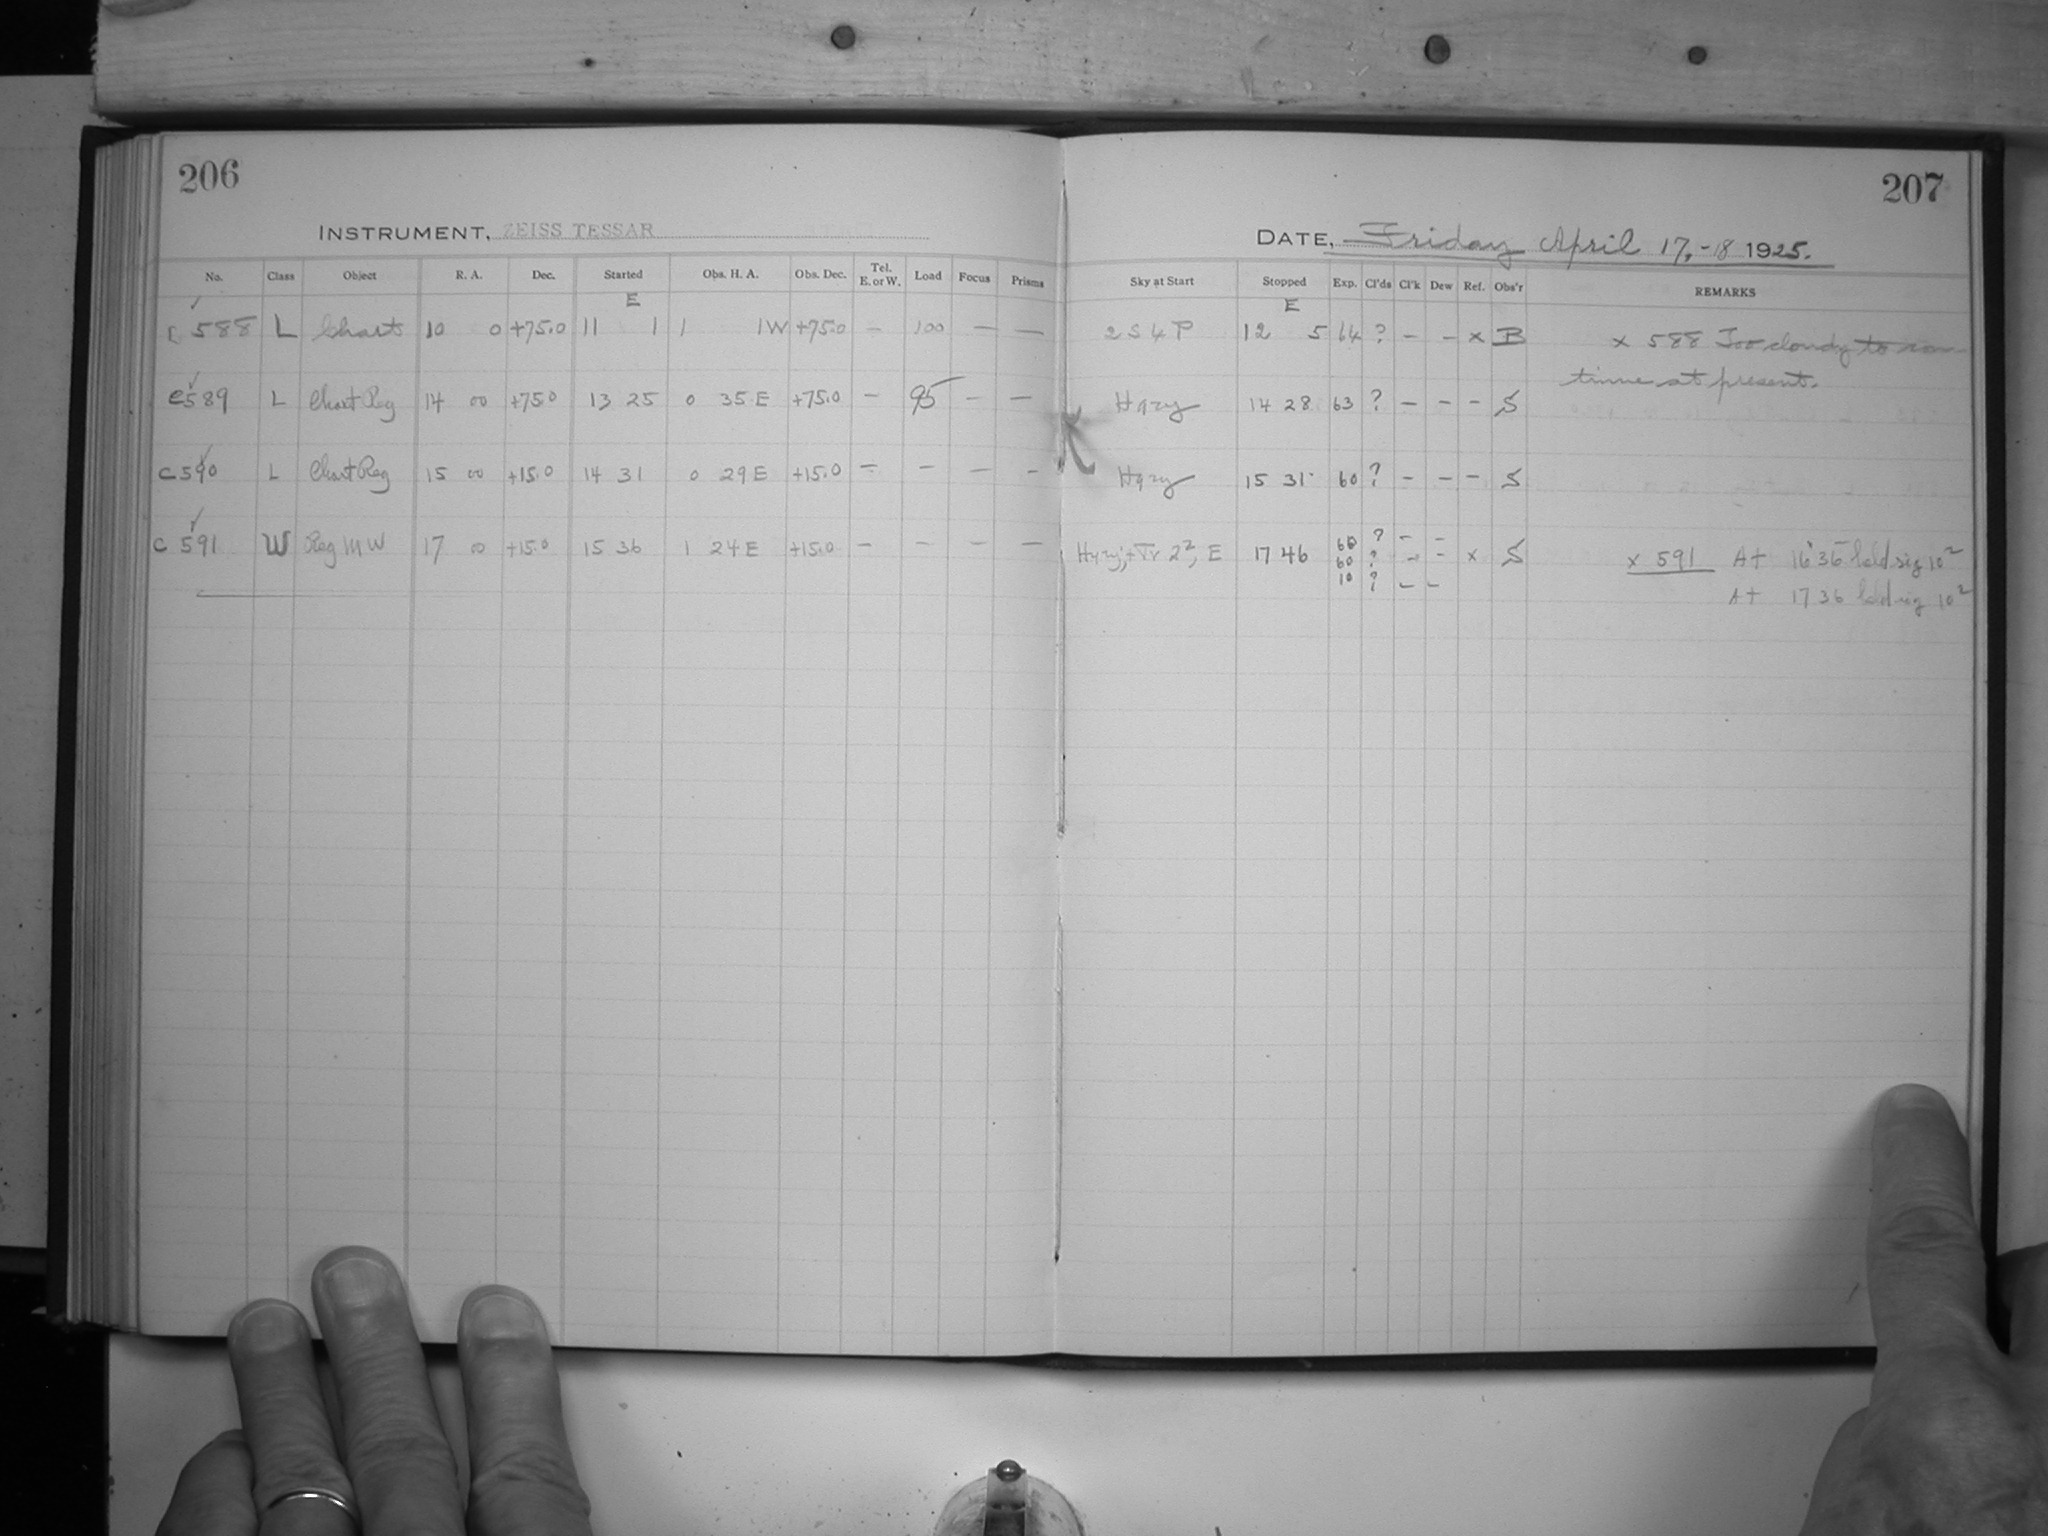 206
207
INSTRUMENT, ZEISS TESSAR
DATE, Friday April 17,-18 1925.
No. Class Object R. A. Dec. Started Obs. H. A. Obs. Dec. Tel. E. or W. Load Focus Prisms Sky at Start Stopped Exp. Cl'ds Cl'k Dew Ref. Obs'r REMARKS
E E
c 588 L Chart 10 0 +75.0 11 1 1 1W +75.0 - 100 - - 2 S 4 P 12 5 64 ? - - x B x 588 Too cloudy to con-
tinue at present.
c589 L Chart Reg 14 00 +75.0 13 25 0 35 E +75.0 - 95 - - Hazy 14 28 63 ? - - - S
c590 L Chart Reg 15 00 +15.0 14 31 0 29 E +15.0 - - - - Hazy 15 31 60 ? - - - S
c 591 W Reg M W 17 00 +15.0 15 36 1 24 E +15.0 - - - - Hazy, + Tr 2², E 17 46 60 ? - - x S x 591 At 16 36 10²
60 ? - -
10 ? - - At 17 36 10²